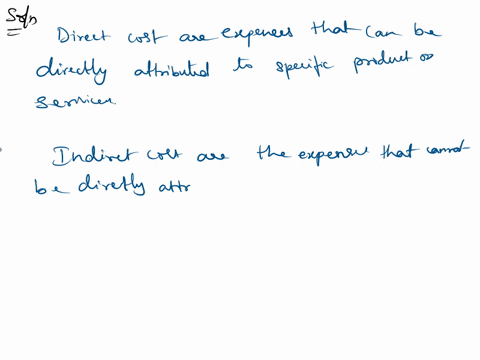 Soln
Direct cost are expenses that can be
directly attributed to specific product or
services
Indirect cost are the expense that cannot
be directly attr